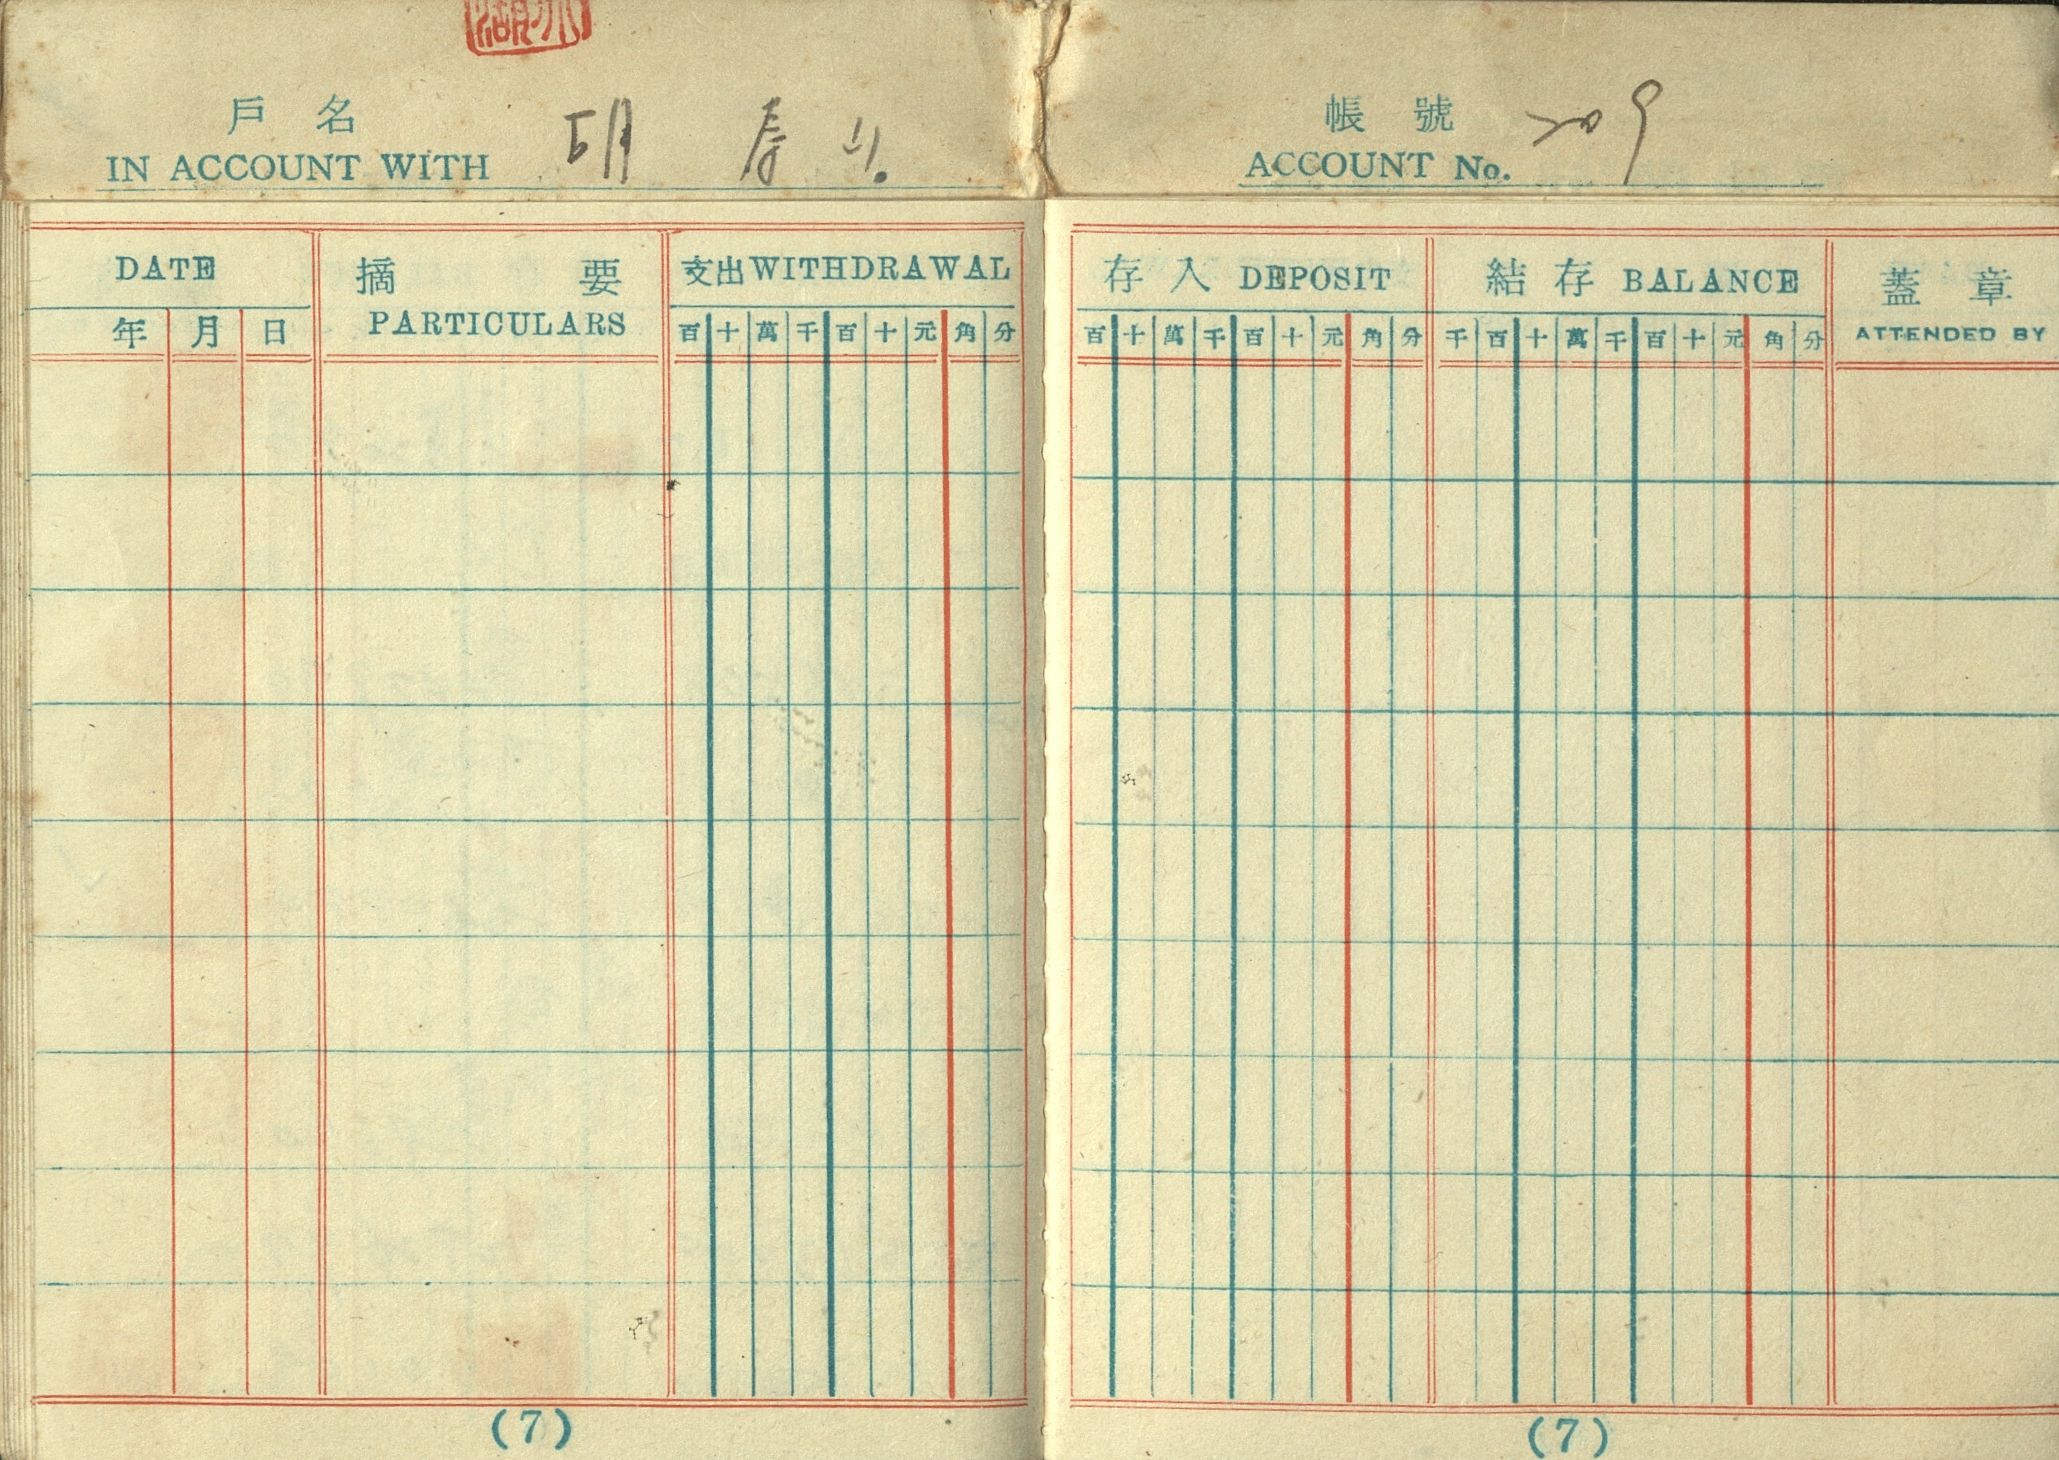 戶 名
IN ACCOUNT WITH 胡
帳 號
ACCOUNT No. 209
DATE
年 月 日
摘 要
PARTICULARS
支出 WITHDRAWAL
百 十 萬 千 百 十 元 角 分
存 入 DEPOSIT
百 十 萬 千 百 十 元 角 分
結 存 BALANCE
千 百 十 萬 千 百 十 元 角 分
蓋 章
ATTENDED BY
(7)
(7)